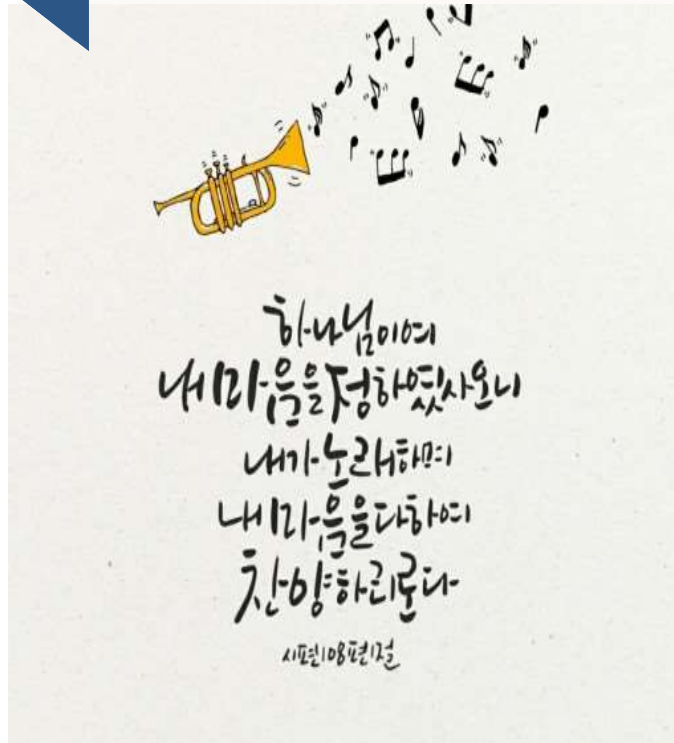 하나님이여
내 마음을 정하였사오니
내가 노래하며
내 마음을 다하여
찬양하리로다
시편 108편 1절